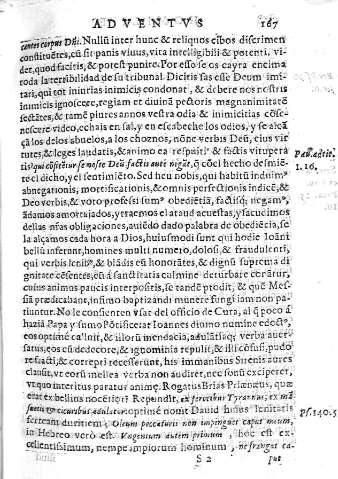 ADVENTVS 167
centes corpus Dñi. Nullū inter hunc & reliquos cibos discrimen
constituētes, cū sit panis viuus, vita intelligibili & potenti, vi-
det, quod facitis, & potest punire. Por esso se os cayra encima
toda la terribilidad de su tribunal. Dicitis sas esse Deum imi-
tari, qui tot iniurias inimicis condonat, & debere nos nostris
inimicis ignoscere, regiam et diuinā pectoris magnanimitatē
sectātes, & tamē plures annos vestra odia & inimicitias cōse-
nescere video, echais en sal, y en escabeche los odios, y se alcā
ça los delos abuelos, a los choznos, nōne verbis Deū, eius vir
tutes, & leges laudatis, & animo ea respuit & factis vitupera
tis qui cōfitētur se nosse Deū factis autē negāt, q̄ cō el hecho desmiē-
te el dicho, y el sentimiēto. Sed heu nobis, qui habitū induim⁹
abnegationis, mortificationis, & omnis perfectionis indicē, &
Deo verbis, & voto professi sum⁹ obediētiā, factisq; negam⁹,
ādamos amortajados, y traemos el ataud acuestas, y sacudimos
dellas nr̄as obligaciones, auiēdo dado palabra de obediēcia, se
la alçamos cada hora a Dios, huiusmodi sunt qui hodie Ioāni
bellū inferunt, homines multi numero, dolosi, & fraudulenti,
qui verbis lenib⁹, & blādis eū honorātes, & dignū suprema di
gnitate cōsentes, eū à sanctitatis culmine deturbare conātur,
cuius animus paucis interpositis, se tandē prodit, & quē Mes-
siā prædicabant, infimo baptizandi munere fungi iam non pa-
tiuntur. No le consienten vsar del officio de Cura, al q̄ poco à
haziā Papa y sumo Pōtifice
eos optimē mendacia, adulatiōq; verba auer-
satus, eos cū dedecore, & ignominia repulit, & illi cōfusi, pudo
re facti, & correpti recesserunt, his immanibus Sirenis aures
clausit, vt eorū mellea verba non audiret, nec sonū exciperet,
ve quo interitus paratur animæ. Rogatus Brias Priæneus, quæ
erat ex bellius nocētior? Rependit, ex ferocibus Tyrannus, ex mā
suetis & cicuribus adulator optimē nouit Dauid huius lenitatis
Oleum peccatoris non impinguet caput meum,
in Hebreo verò est. Vngentum autem primum, hoc est ex-
cellentissimum, nempe impiorum hominum, ne frangat ca-
S 2 put
Paul. ad tit.
1.16.
Ps. 140.5